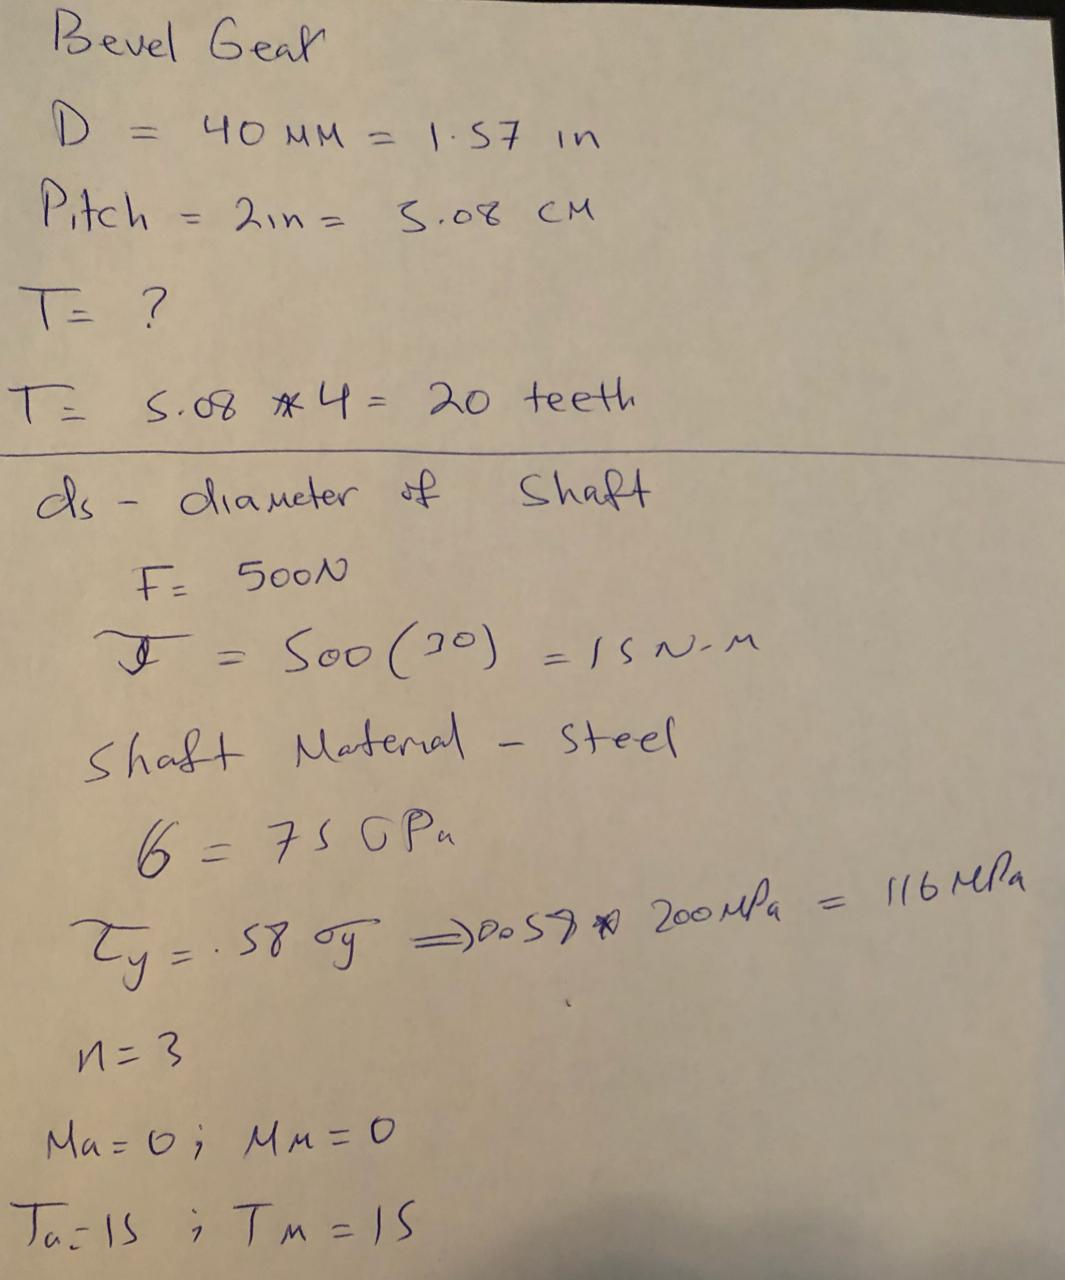 Bevel Gear
D = 40 MM = 1.57 in
Pitch = 2in = 5.08 CM
T = ?
T = 5.08 * 4 = 20 teeth
ds - diameter of Shaft
F = 500N
= 500 (30) = 15 N-M
Shaft Material - Steel
G = 75 GPa
τy = .58 σy ⇒ 0.58 * 200 MPa = 116 MPa
n = 3
Ma = 0 ; Mm = 0
Ta = 15 ; Tm = 15